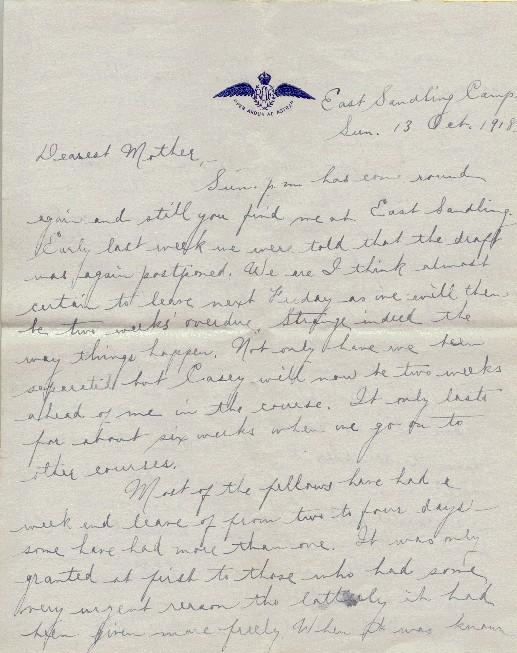 PER ARDUA AD ASTRA
East Sandling Camp
Sun. 13 Oct. 1918
Dearest Mother,-
Sun. p.m. has come round
again and still you find me at East Sandling.
Early last week we were told that the draft
was again postponed. We are I think almost
certain to leave next Friday as we will then
be two weeks' overdue. Strange indeed the
way things happen. Not only have we been
separated but Casey will now be two weeks
ahead of me in the course. It only lasts
for about six weeks when we go on to
other courses.
Most of the fellows have had a
week end leave of from two to four days -
some have had more than one. It was only
granted at first to those who had some
very urgent reason tho latterly it had
been given more freely. When it was known